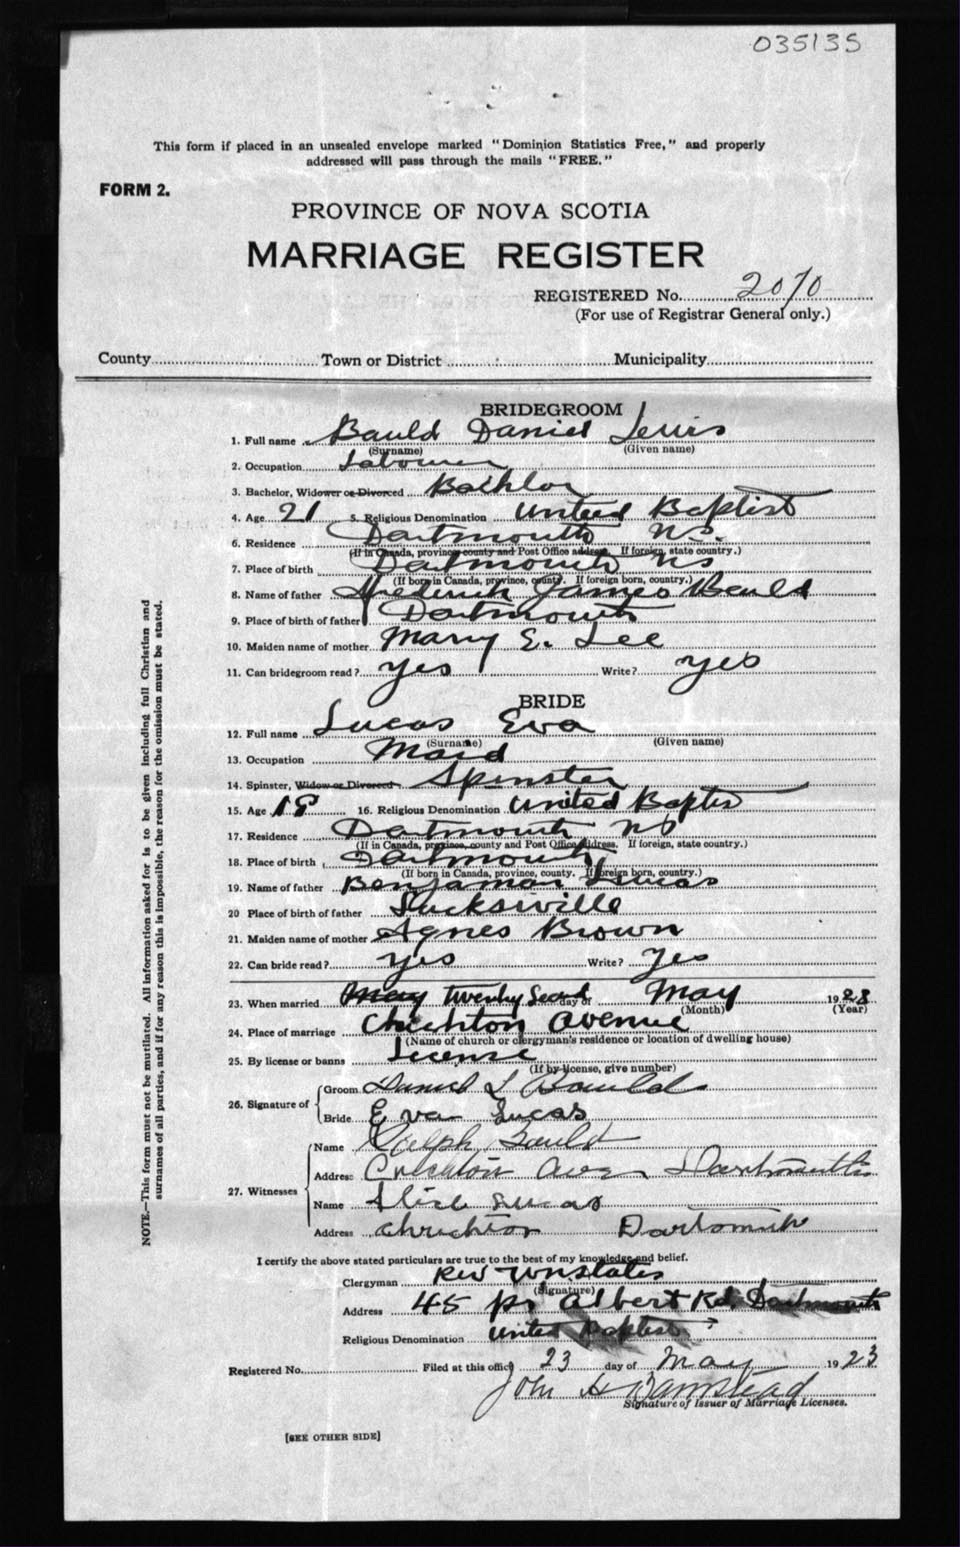 035135
This form if placed in an unsealed envelope marked "Dominion Statistics Free," and properly
addressed will pass through the mails "FREE."
FORM 2.
PROVINCE OF NOVA SCOTIA
MARRIAGE REGISTER
REGISTERED No. 2070
(For use of Registrar General only.)
County Town or District Municipality
BRIDEGROOM
1. Full name Bauld Daniel Lewis
(Surname) (Given name)
2. Occupation Labourer
3. Bachelor, Widower or Divorced Bachlor
4. Age 21 5. Religious Denomination United Baptist
6. Residence Dartmouth NS.
(If in Canada, province county and Post Office address. If foreign, state country.)
7. Place of birth Dartmouth NS
(If born in Canada, province, county. If foreign born, country.)
8. Name of father Frederick James Bauld
9. Place of birth of father Dartmouth
10. Maiden name of mother Mary E. Lee
11. Can bridegroom read? yes Write? yes
BRIDE
12. Full name Lucas Eva
(Surname) (Given name)
13. Occupation Maid
14. Spinster, Widow or Divorced Spinster
15. Age 18 16. Religious Denomination United Baptis
17. Residence Dartmouth NS
(If in Canada, province, county and Post Office address. If foreign, state country.)
18. Place of birth Dartmouth
(If born in Canada, province, county. If foreign born, country.)
19. Name of father Benjaman Lucas
20 Place of birth of father Lucksville
21. Maiden name of mother Agnes Brown
22. Can bride read? yes Write? Yes
23. When married May twenty Second day of May 1923
(Month) (Year)
24. Place of marriage Chrichton Avenue
(Name of church or clergyman's residence or location of dwelling house)
25. By license or banns License
(If by license, give number)
26. Signature of Groom Daniel L Bauld
Bride Eva Lucas
27. Witnesses
Name Ralph Bauld
Address Crichton Ave Dartmouth
Name Alice Lucas
Address Chrichton Dartomuth
I certify the above stated particulars are true to the best of my knowledge and belief.
Clergyman Rev WN States
(Signature)
Address 45 Pr Albert Rd. Dartmouth
Religious Denomination United Baptist
Registered No. Filed at this office 23 day of May 1923
John H Wamstead
Signature of Issuer of Marriage Licenses.
[SEE OTHER SIDE]
NOTE.—This form must not be mutilated. All information asked for is to be given including full Christian and
surnames of all parties, and if for any reason this is impossible, the reason for the omission must be stated.